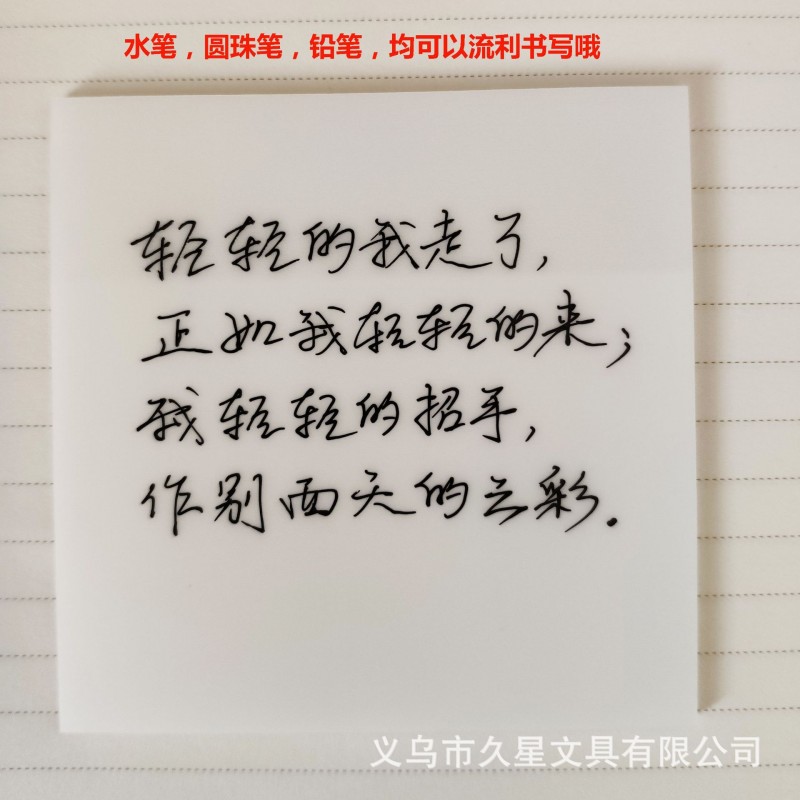 水笔，圆珠笔，铅笔，均可以流利书写哦
轻轻的我走了，
正如我轻轻的来；
我轻轻的招手，
作别西天的云彩.
义乌市久星文具有限公司